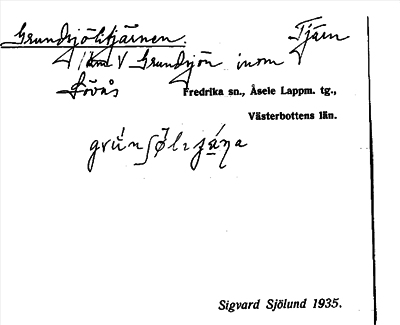 Grundsjöltjärnen. Tjärn
1 km V Grundsjön inom
Lövås Fredrika sn., Åsele Lappm. tg.,
Västerbottens län.
Sigvard Sjölund 1935.